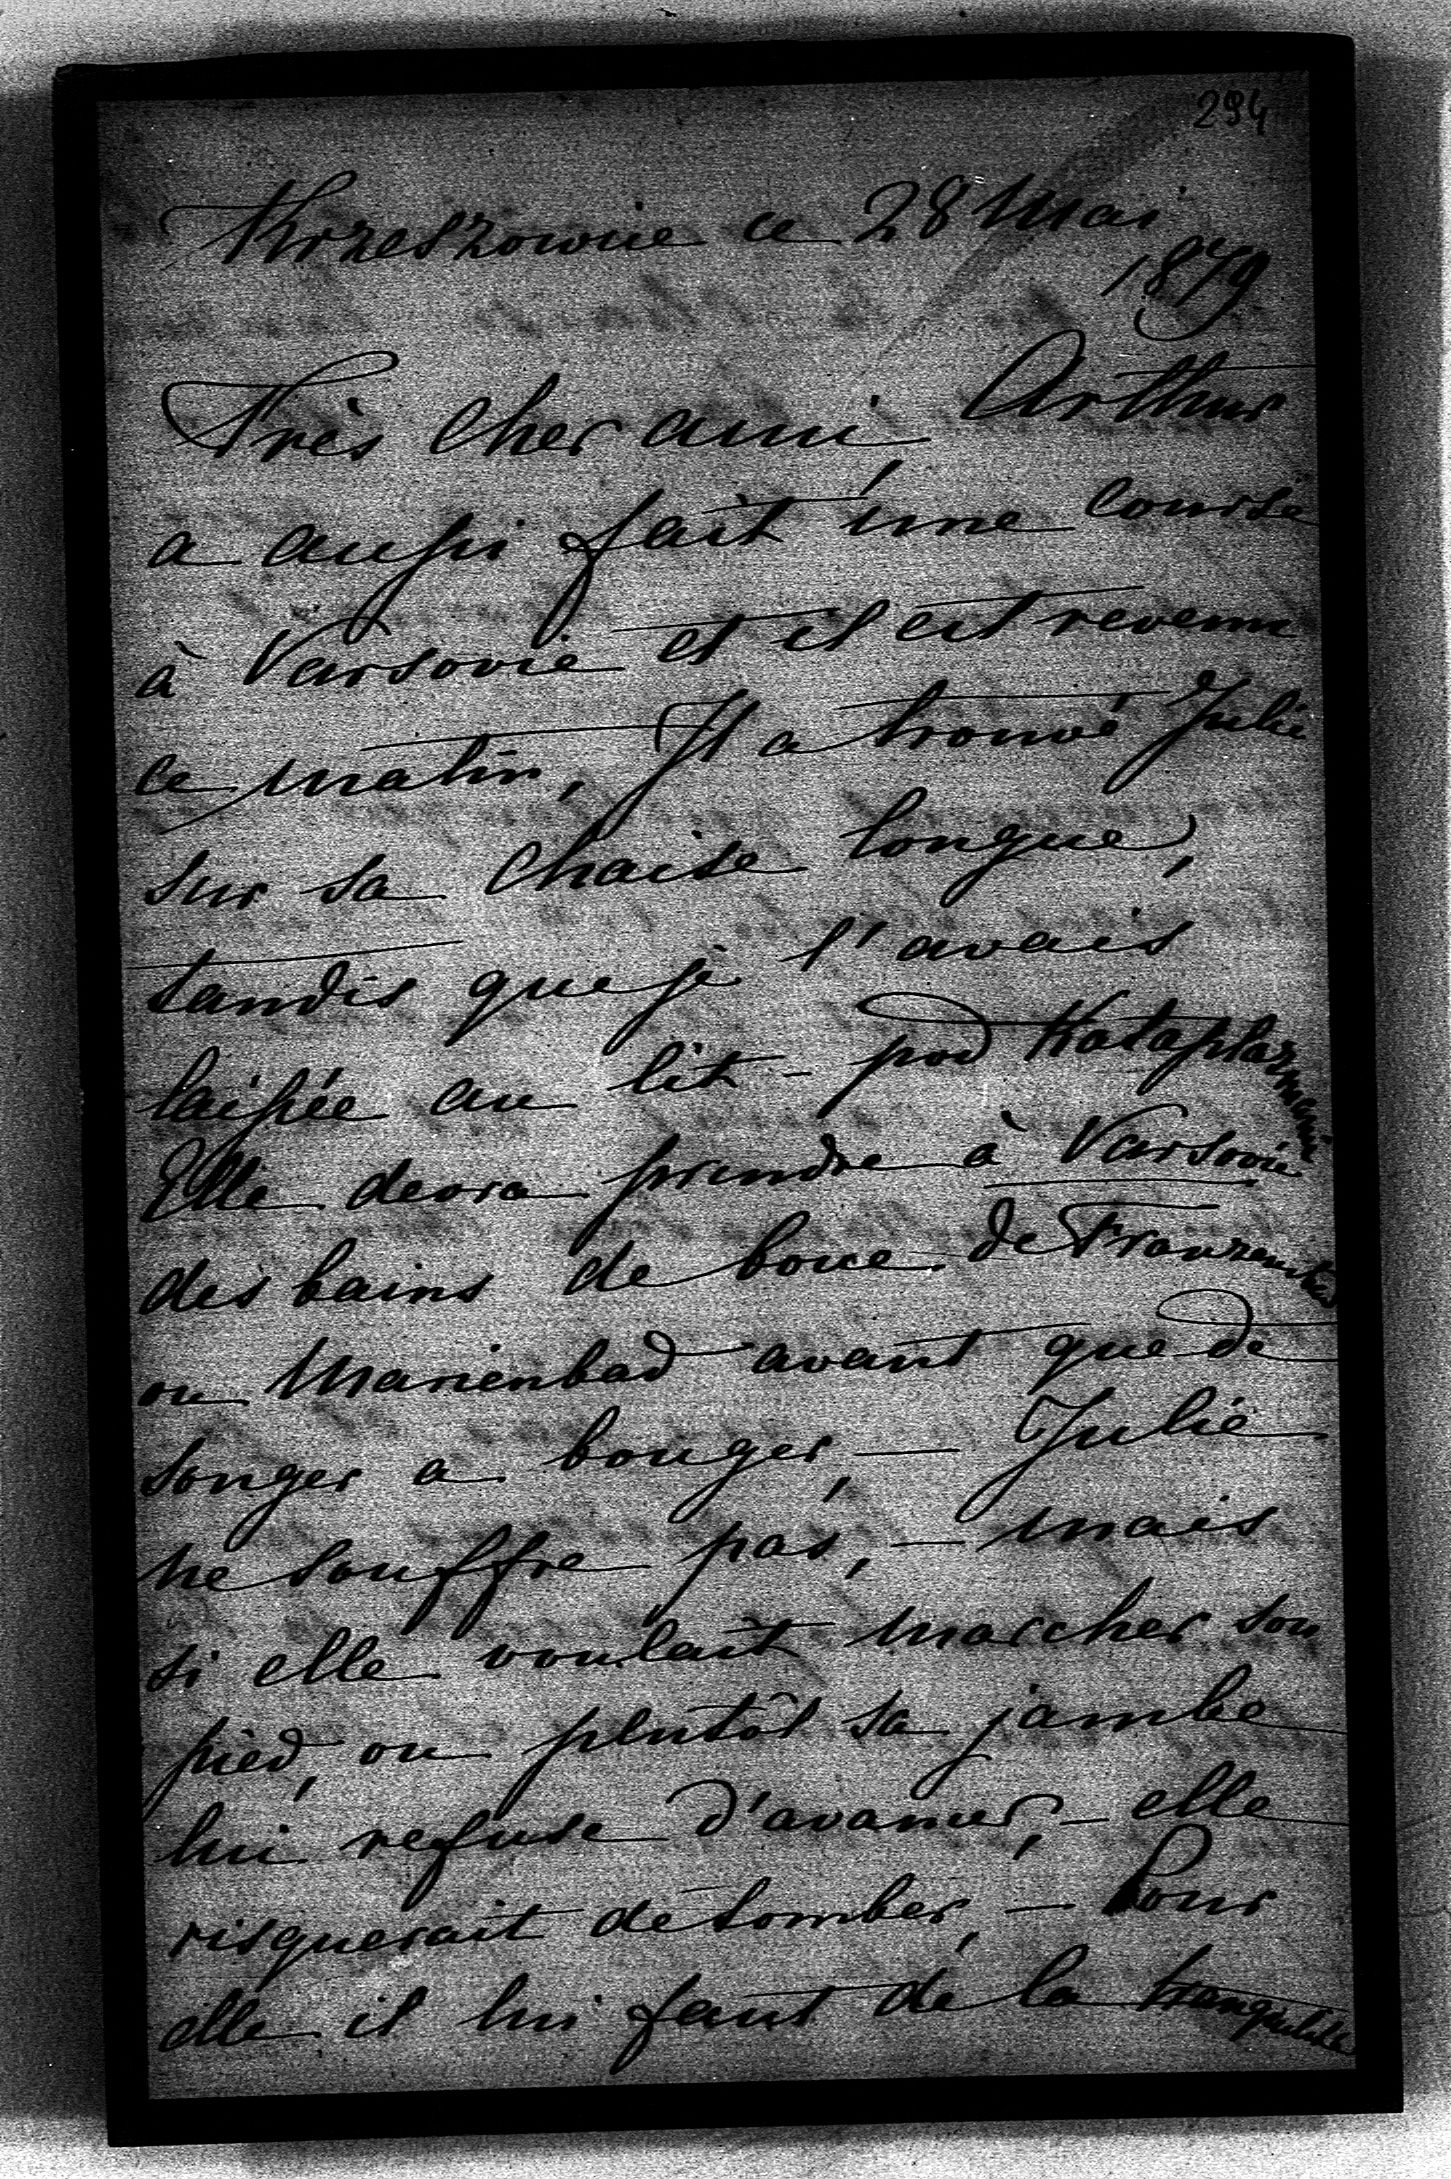 294
Krzeszowice ce 28 Mai
1879
Très cher ami, Arthur
a aussi fait une course
à Varsovie et il est revenu
ce matin, Il a trouvé Julie
sur sa chaise longue,
tandis que je l'avais
laissée au lit - pod Kataplazmami
Elle devra prendre à Varsovie
des bains de boue de Franzensbad
ou Marienbad avant que de
songer a bouger, — Julie
ne souffre pas, — mais
si elle voulait marcher son
pied, ou plutôt sa jambe
lui refuse d'avancer, - elle
risquerait de tomber, — Pour
elle il lui faut de la tranquilité